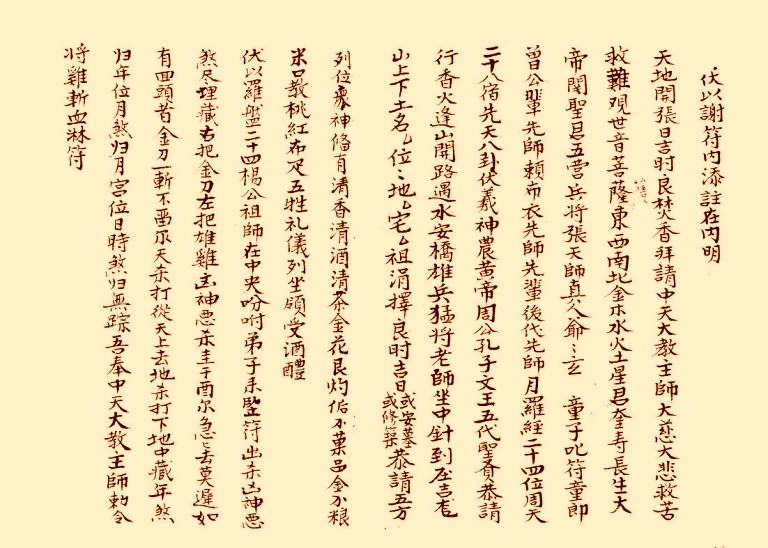 伏以謝符内添註在内明
天地開張日吉时良焚香拜請中天大教主師大慈大悲救苦
救難观世音菩薩東西南北金木水火土星君奎寿長生大
帝關聖君五营兵将張天師真人爺〻玄 童子叱符童郎
曾公輩先師賴布衣先師先輩後代先師月羅經二十四位周天
二十八宿先天八卦伏義神農黄帝周公孔子文王五代聖賢恭請
行香火逢山開路遇水安橋雄兵猛将老師坐中針到座吉
山上下土名厶位〻地厶宅厶祖涓擇良时吉日或安墓或修築恭請五方
列位眾神俻有清香清酒清茶金花艮灼 菓品金 粮
米 教桃紅布疋五牲礼儀列坐領受酒醴
伏以羅盤二十四楊公祖師在中央吩咐弟子来監符出杀凶神悪
煞尽埋藏右把金刀左把雄雞凶神悪杀 于酉尔急〻去莫遲如
有回頭者金刀一斬不畱尔天杀打從天上去地杀打下地中藏年煞
归年位月煞归月宫位日時煞归無踪吾奉中天大教主師勅令
将雞斬血淋符